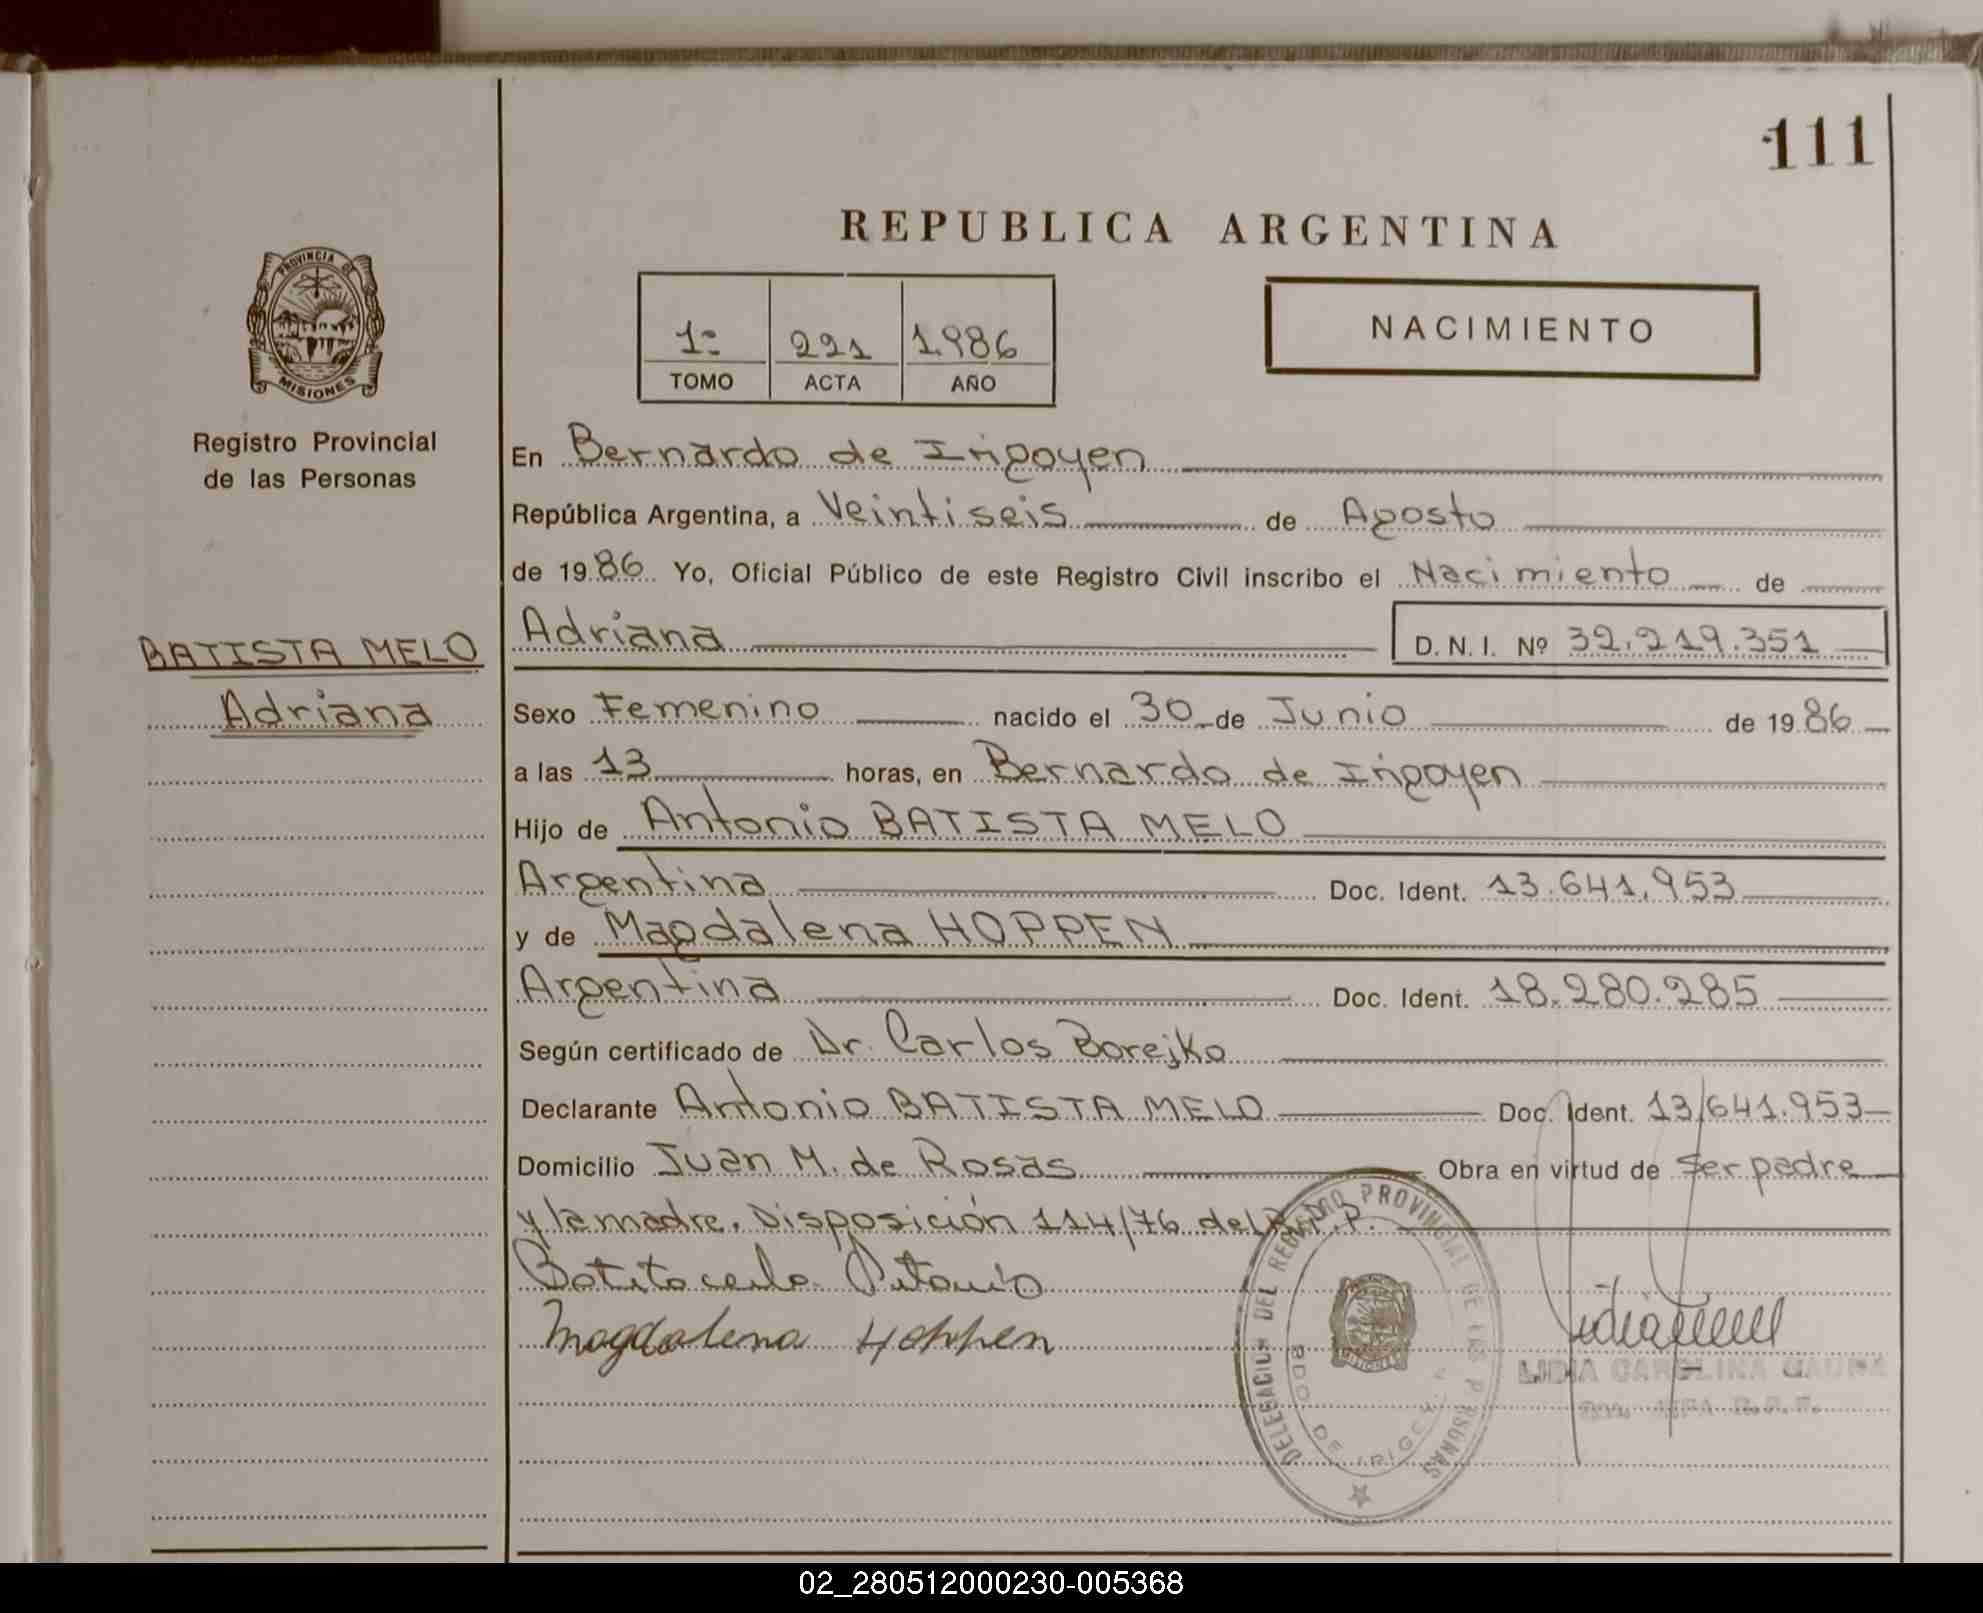 111
REPUBLICA ARGENTINA
PROVINCIA DE
MISIONES
1º 221 1986
TOMO ACTA AÑO
NACIMIENTO
Registro Provincial
de las Personas
En Bernardo de Irigoyen
República Argentina, a Veintiseis de Agosto
de 1986 Yo, Oficial Público de este Registro Civil inscribo el Nacimiento de
BATISTA MELO
Adriana
Adriana D. N. I. Nº 32.219.351
Sexo Femenino nacido el 30 de Junio de 1986
a las 13 horas, en Bernardo de Irigoyen
Hijo de Antonio BATISTA MELO
Argentina Doc. Ident. 13.641.953
y de Magdalena HOPPEN
Argentina Doc. Ident. 18.280.285
Según certificado de Dr. Carlos Borejko
Declarante Antonio BATISTA MELO Doc. Ident. 13.641.953
Domicilio Juan M. de Rosas Obra en virtud de ser padre
y la madre. Disposición 114/76 del R.P.P.
Magdalena Hoppen
DELEGACION DEL REGISTRO PROVINCIAL DE LAS PERSONAS
BDO. DE IRIGOYEN
MISIONES
LIDIA CAROLINA
02_280512000230-005368